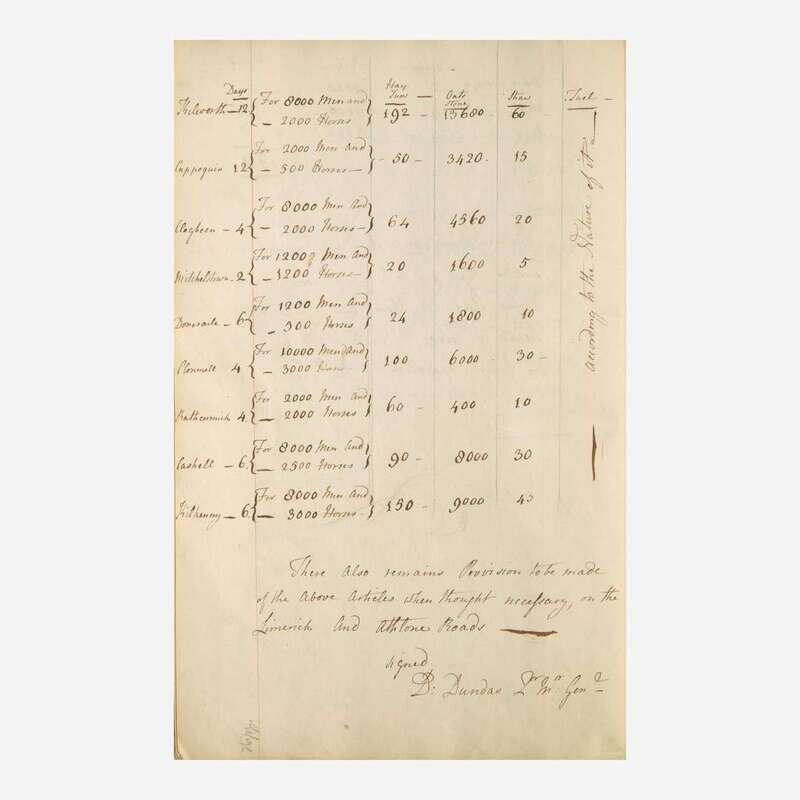 Days Hay Tuns — Oats Stone Straw Fuel —
Kilworth — 12 { For 8000 Men and } 192 — 13680 . 60
— 2000 Horses
Cappoquin 12 { For 2000 Men And } — 50 — 3420 . 15
— 500 Horses —
Clogheen — 4 { For 8000 Men And } 64 4560 20
— 2000 Horses —
Mitchelstown — 2 { For 1200 Men And } 20 1600 5
— 1200 Horses —
Doneraile — 6 { For 1200 Men And } 24 1800 10
— 300 Horses
Clonmell 4 { For 10000 Men And } 100 6000 30 —
— 3000 Horses —
Rathcormick 4 { For 2000 Men And } 60 — 400 10
— 2000 Horses
Cashell — 6 { For 8000 Men And } 90 — 8000 30
— 2500 Horses
Kilkenny — 6 { For 8000 Men And } 150 — 9000 45
— 3000 Horses —
according to the Nature of it —
There also remains Provision to be made
of the above Articles when thought necessary, on the
Limerick And Athlone Roads —
signed
D: Dundas Qr Mr Genl